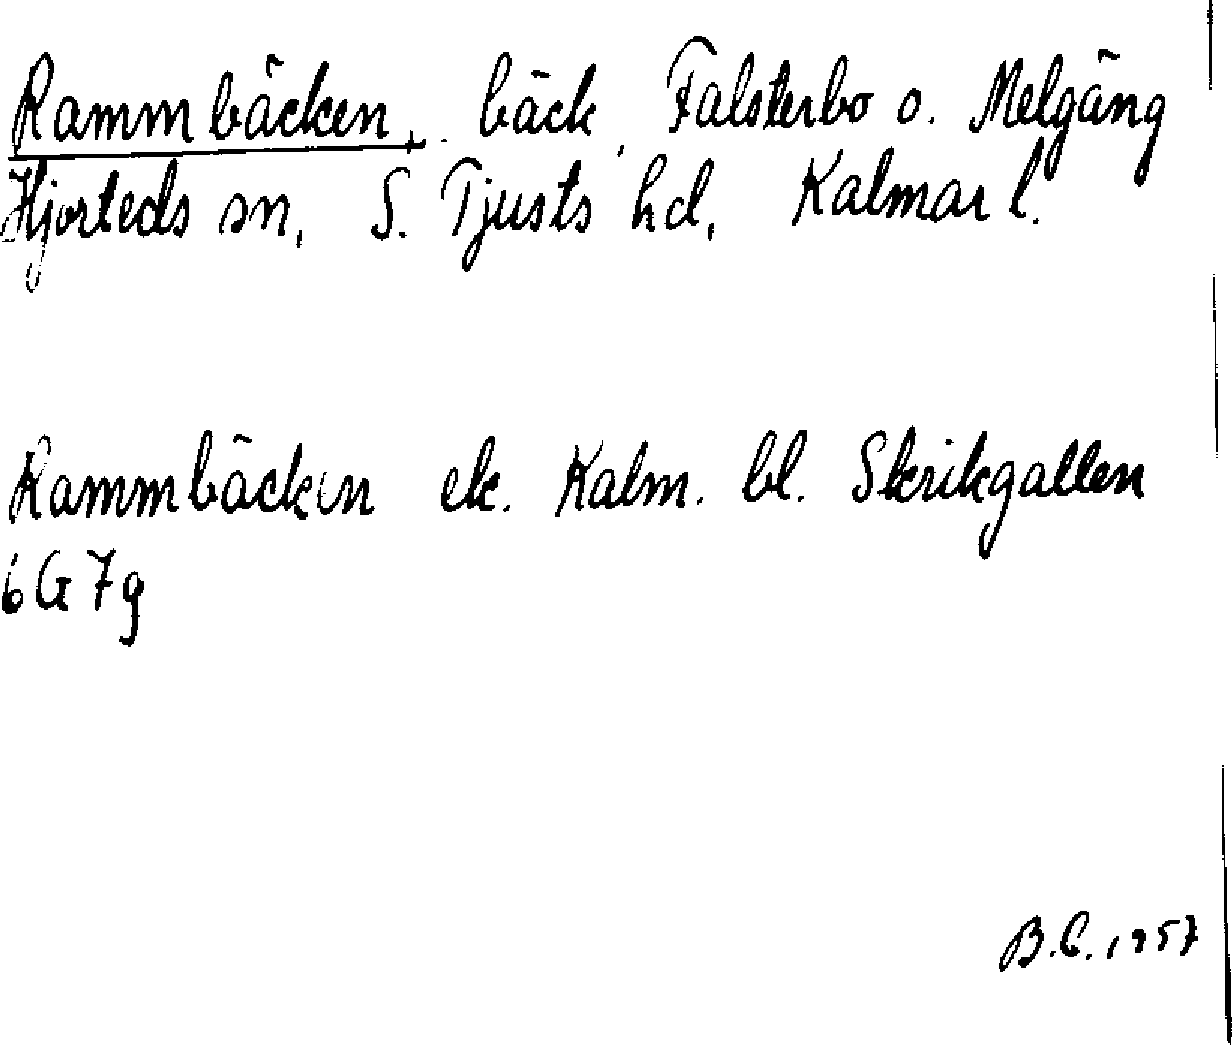 Rammbäcken, bäck, Falsterbo o. Melgäng
Hjorteds sn, S. Tjusts hd, Kalmar l.
Rammbäcken ek. Kalm. bl. Skrikgallen
6G7g
B.C. 1957